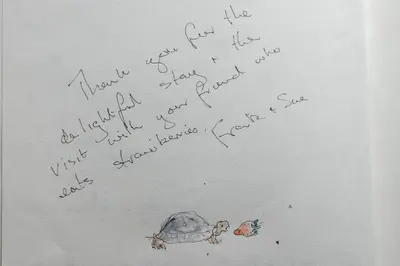 Thank you for the
delightful stay + the
visit with your friend who
eats strawberries. Frank + Sue